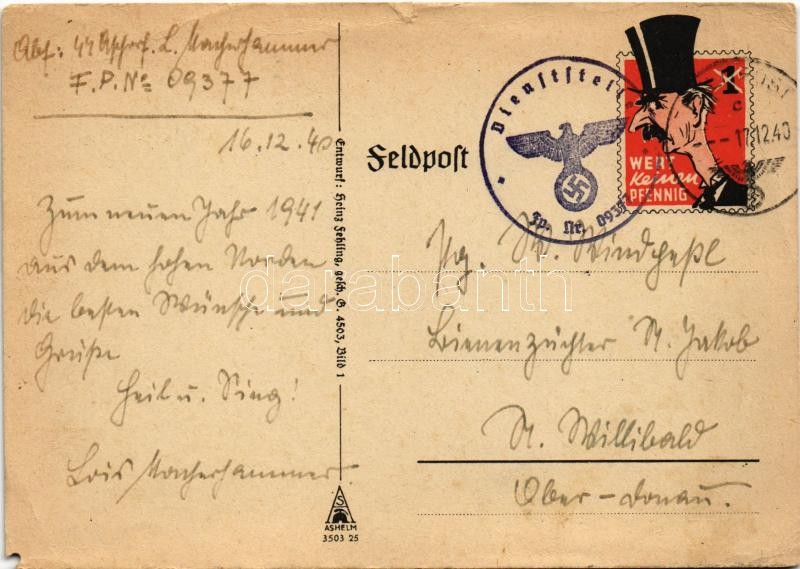 Abs: ᛋᛋ L. Macherhammer
F.P.No 09377
16.12.40
Zum neuen Jahr 1941
aus dem hohen Norden
die besten Wünsche und
Grüße
Heil u. Sieg!
Lois Macherhammer
Entwurf: Heinz Fehling, gesch. G. 4503, Bild 1
ASHELM
3503 25
Feldpost
Dienststelle
Fp. Nr. 0937
FELDPOST
17.12.40
1
c
WERT
keinen
PFENNIG
Pg.
Bienenzüchter St. Jakob
St. Willibald
Ober-Donau.
darabanth